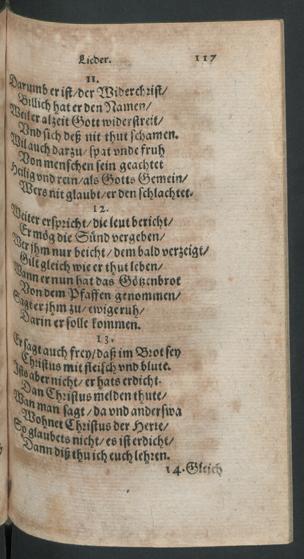 Lieder. 117
11.
Darumb er ist/der Widerchrist/
Billich hat er den Namen/
Weil er alzeit Gott widerstreit/
Vnd sich deß nit thut schamen.
Wil auch darzu/spat vnde fruh
Von menschen sein geachtet
Heilig vnd rein/als Gotts Gemein/
Wers nit glaubt/er den schlachtet.
12.
Weiter erspricht/die leut bericht/
Er mög die Sünd vergeben/
Wer jhm nur beicht/dem bald verzeigt/
Gilt gleich wie er thut leben/
Wann er nun hat das Götzenbrot
Von dem Pfaffen genommen/
Sagt er jhm zu/ewige ruh/
Darin er solle kommen.
13.
Er sagt auch frey/daß im Brot sey
Christus mit fleisch vnd blute.
Ists aber nicht/er hats erdicht.
Dan Christus melden thute/
Wan man sagt/da vnd anderswa
Wohnet Christus der Herre/
So glaubets nicht/es ist erdicht/
Dann diß thu ich euch lehren.
14. Gleich